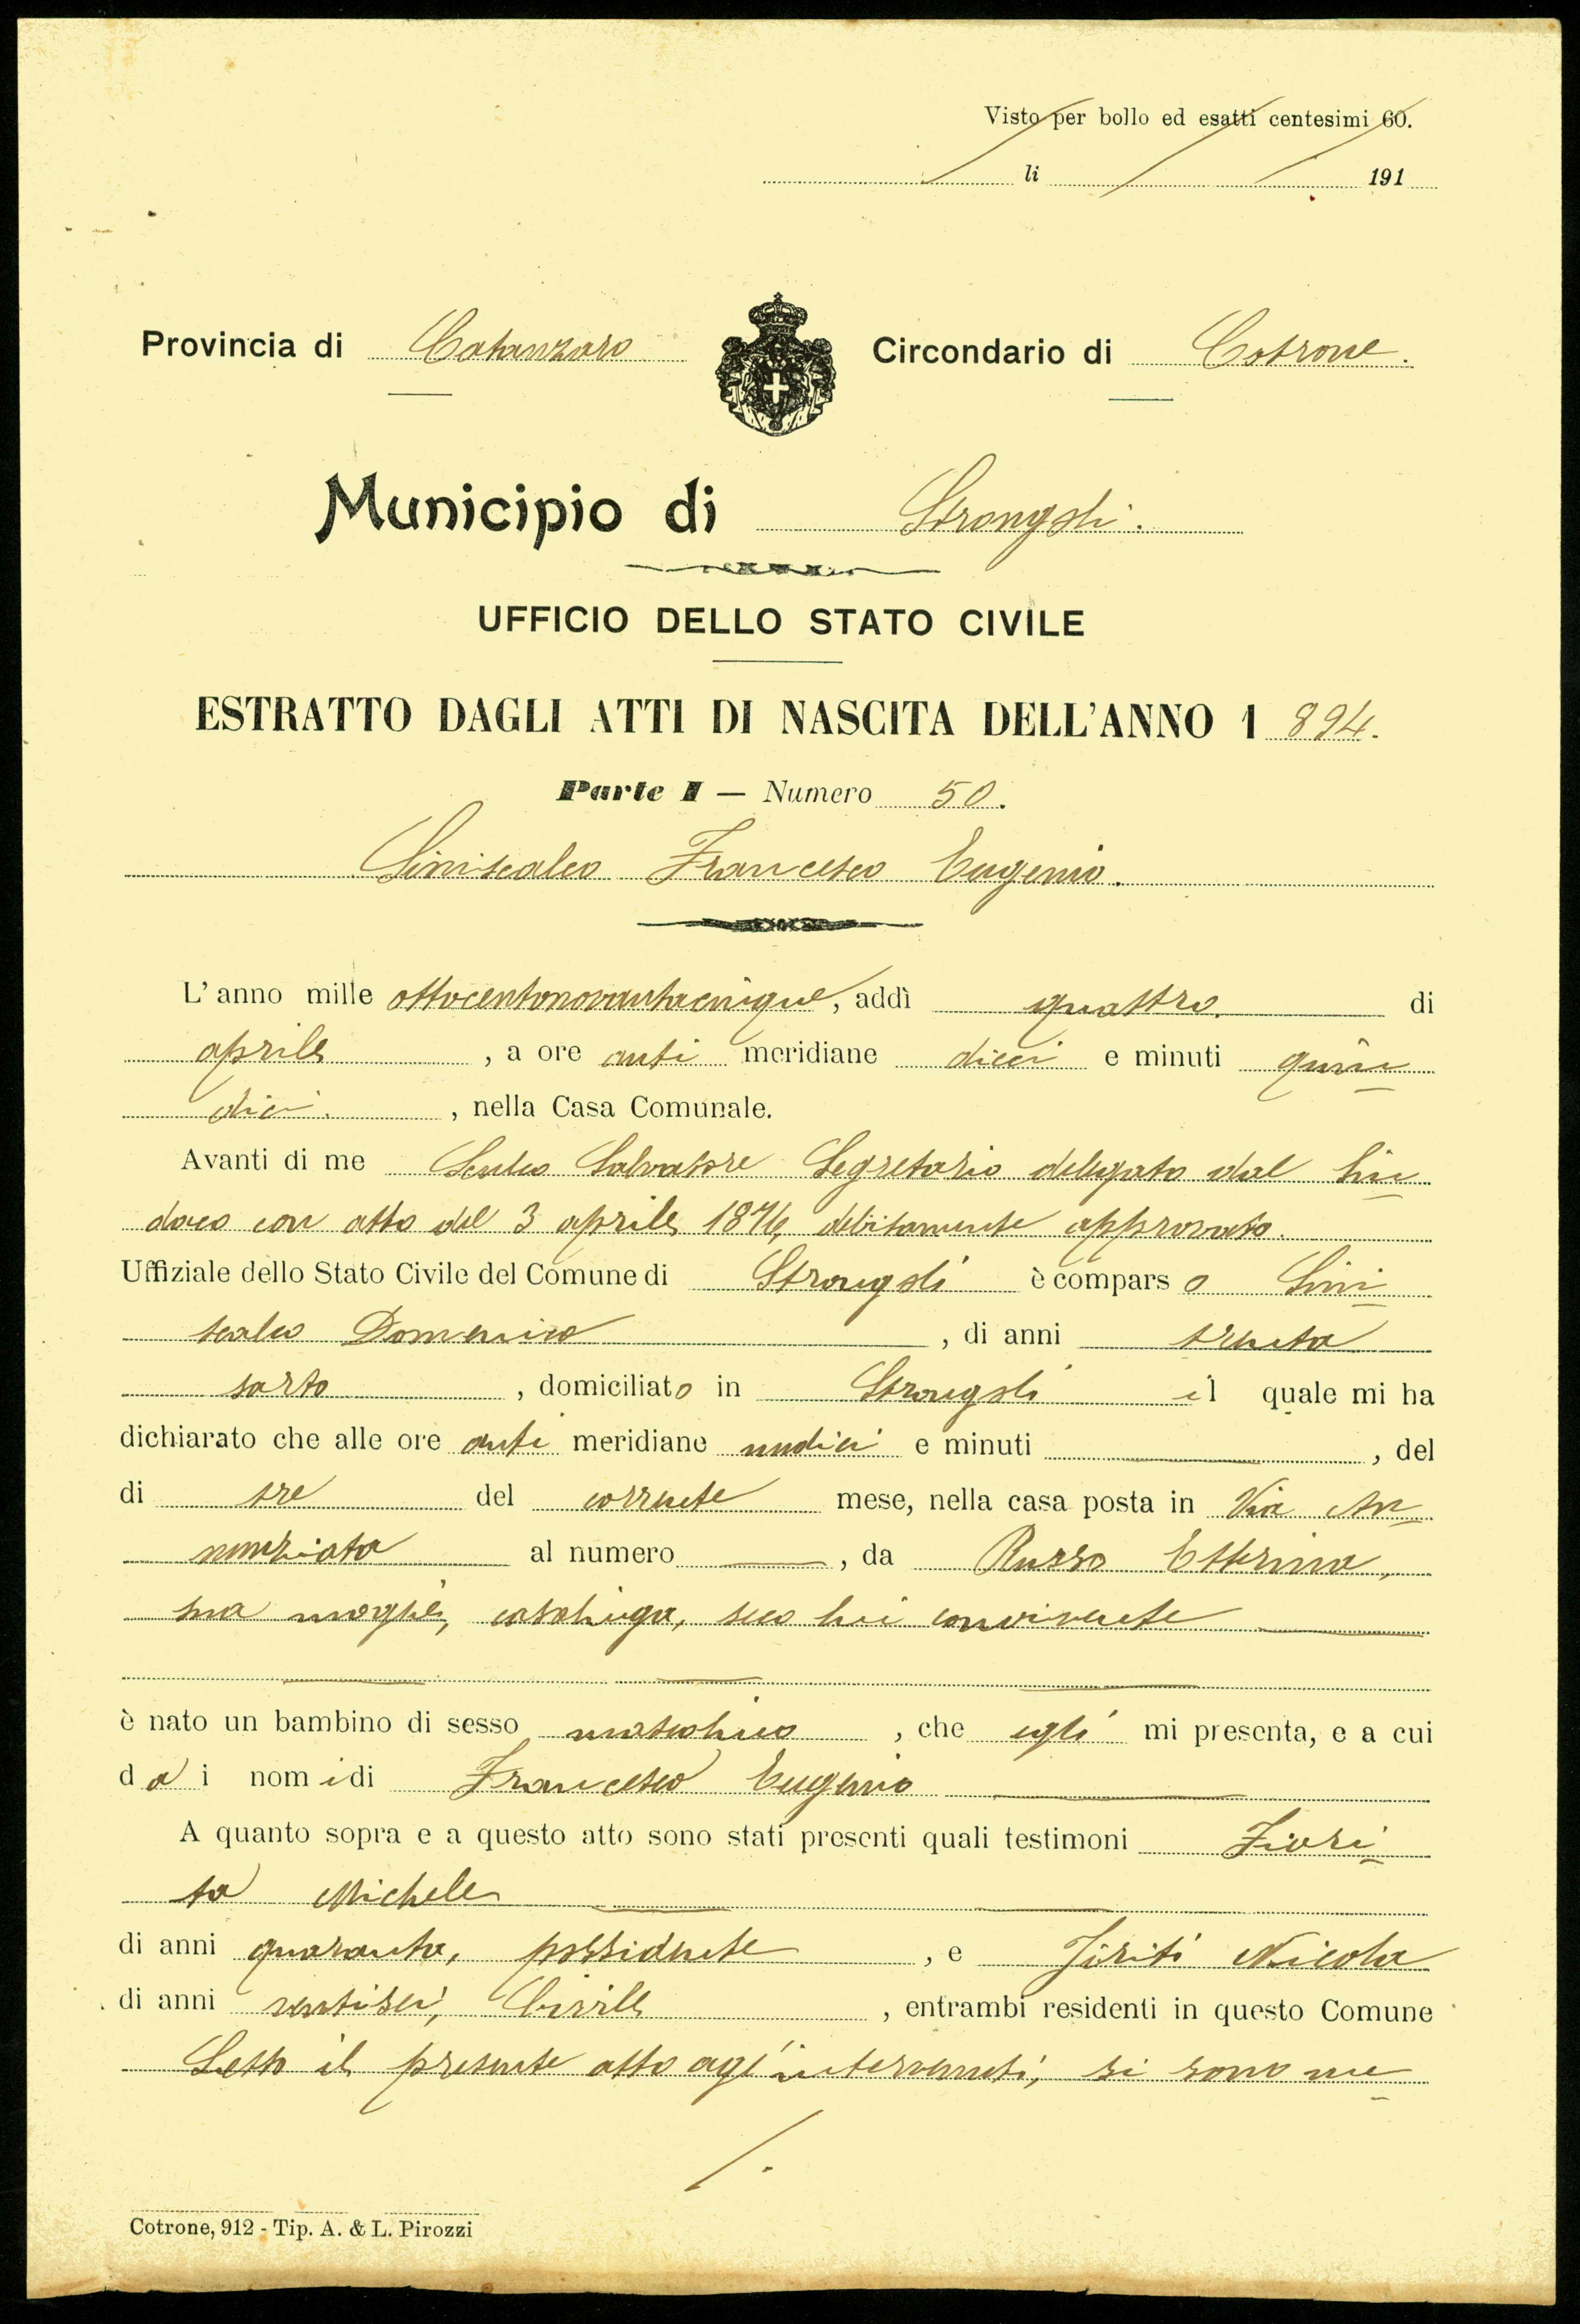 Visto per bollo ed esatti centesimi 60.
li 191
Provincia di Catanzaro
Circondario di Cotrone.
Municipio di Strongoli.
UFFICIO DELLO STATO CIVILE
ESTRATTO DAGLI ATTI DI NASCITA DELL'ANNO 1 894.
Parte I — Numero 50.
Siniscalco Francesco Eugenio.
L'anno mille ottocentonovantacinque, addì quattro. di
aprile, a ore anti meridiane dieci e minuti quin
dici., nella Casa Comunale.
Avanti di me Salvatore Segretario delegato dal Sin
daco con atto del 3 aprile debitamente approvato.
Uffiziale dello Stato Civile del Comune di Strongoli è compars o Sini
scalco Domenico, di anni trenta
sarto, domiciliato in Strongoli il quale mi ha
dichiarato che alle ore anti meridiane undici e minuti —, del
di tre del corrente mese, nella casa posta in Via An
nunziata al numero —, da Russo Etterina,
sua moglie, casalinga, seco lui convivente —
è nato un bambino di sesso maschino, che egli mi presenta, e a cui
d a i nom i di Francesco Eugenio —
A quanto sopra e a questo atto sono stati presenti quali testimoni Fiori
ta Michele —
di anni quaranta, possidente, e Tiriti Nicola
di anni ventisei, Civile, entrambi residenti in questo Comune
Letto il presente atto agl'intervenuti, si sono me
/.
Cotrone, 912 - Tip. A. & L. Pirozzi